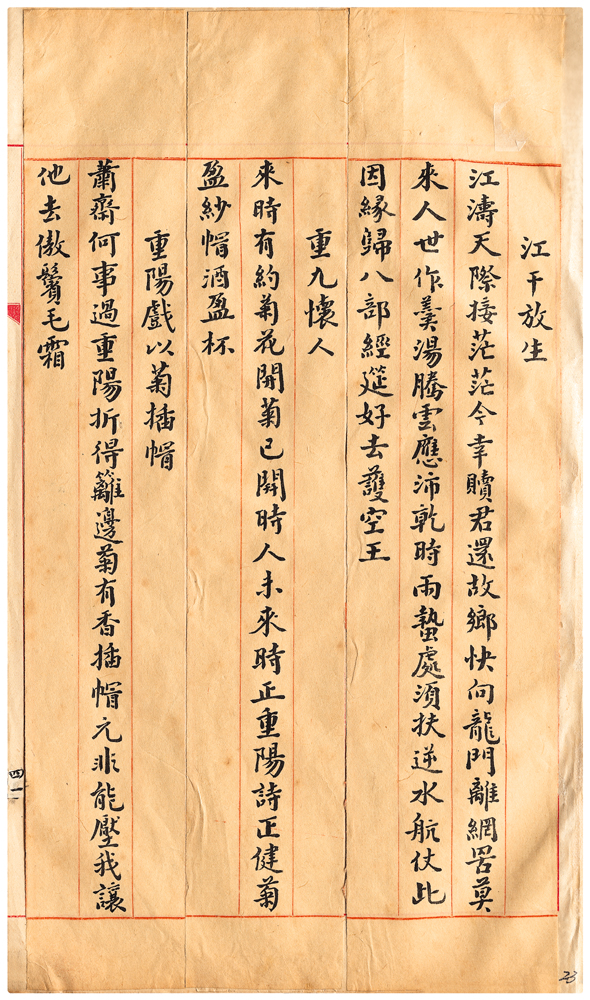 江干放生
江濤天際接茫茫今幸贖君還故鄉快向龍門離網罟莫
來人世作羹湯騰雲應沛乾時雨蟄處須扶逆水航仗此
因緣歸八部經筵好去護空王
重九懷人
來時有約菊花開菊已開時人未來時正重陽詩正健菊
盈紗帽酒盈杯
重陽戲以菊插帽
蕭齋何事過重陽折得籬邊菊有香插帽元非能壓我讓
他去傲鬢毛霜
四一
23